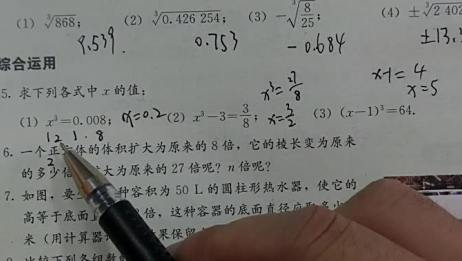 (1) ∛868; (2) ∛0.426 254; (3) −∛(8/25); (4) ±∛2 402
9.539 0.753 −0.684 ±13.
综合运用
x³=27/8 x-1=4
5. 求下列各式中 x 的值: x=5
(1) x³=0.008; x=0.2 (2) x³−3=3/8; x=3/2 (3) (x−1)³=64.
1 2 1 . 8
6. 一个正方体的体积扩大为原来的 8 倍，它的棱长变为原来
2
的多少倍 大为原来的 27 倍呢? n 倍呢?
7. 如图，要 种容积为 50 L 的圆柱形热水器，使它的
高等于底面 倍，这种容器的底面直径应取多少
米（用计算器 果保留
比较下列各组数的